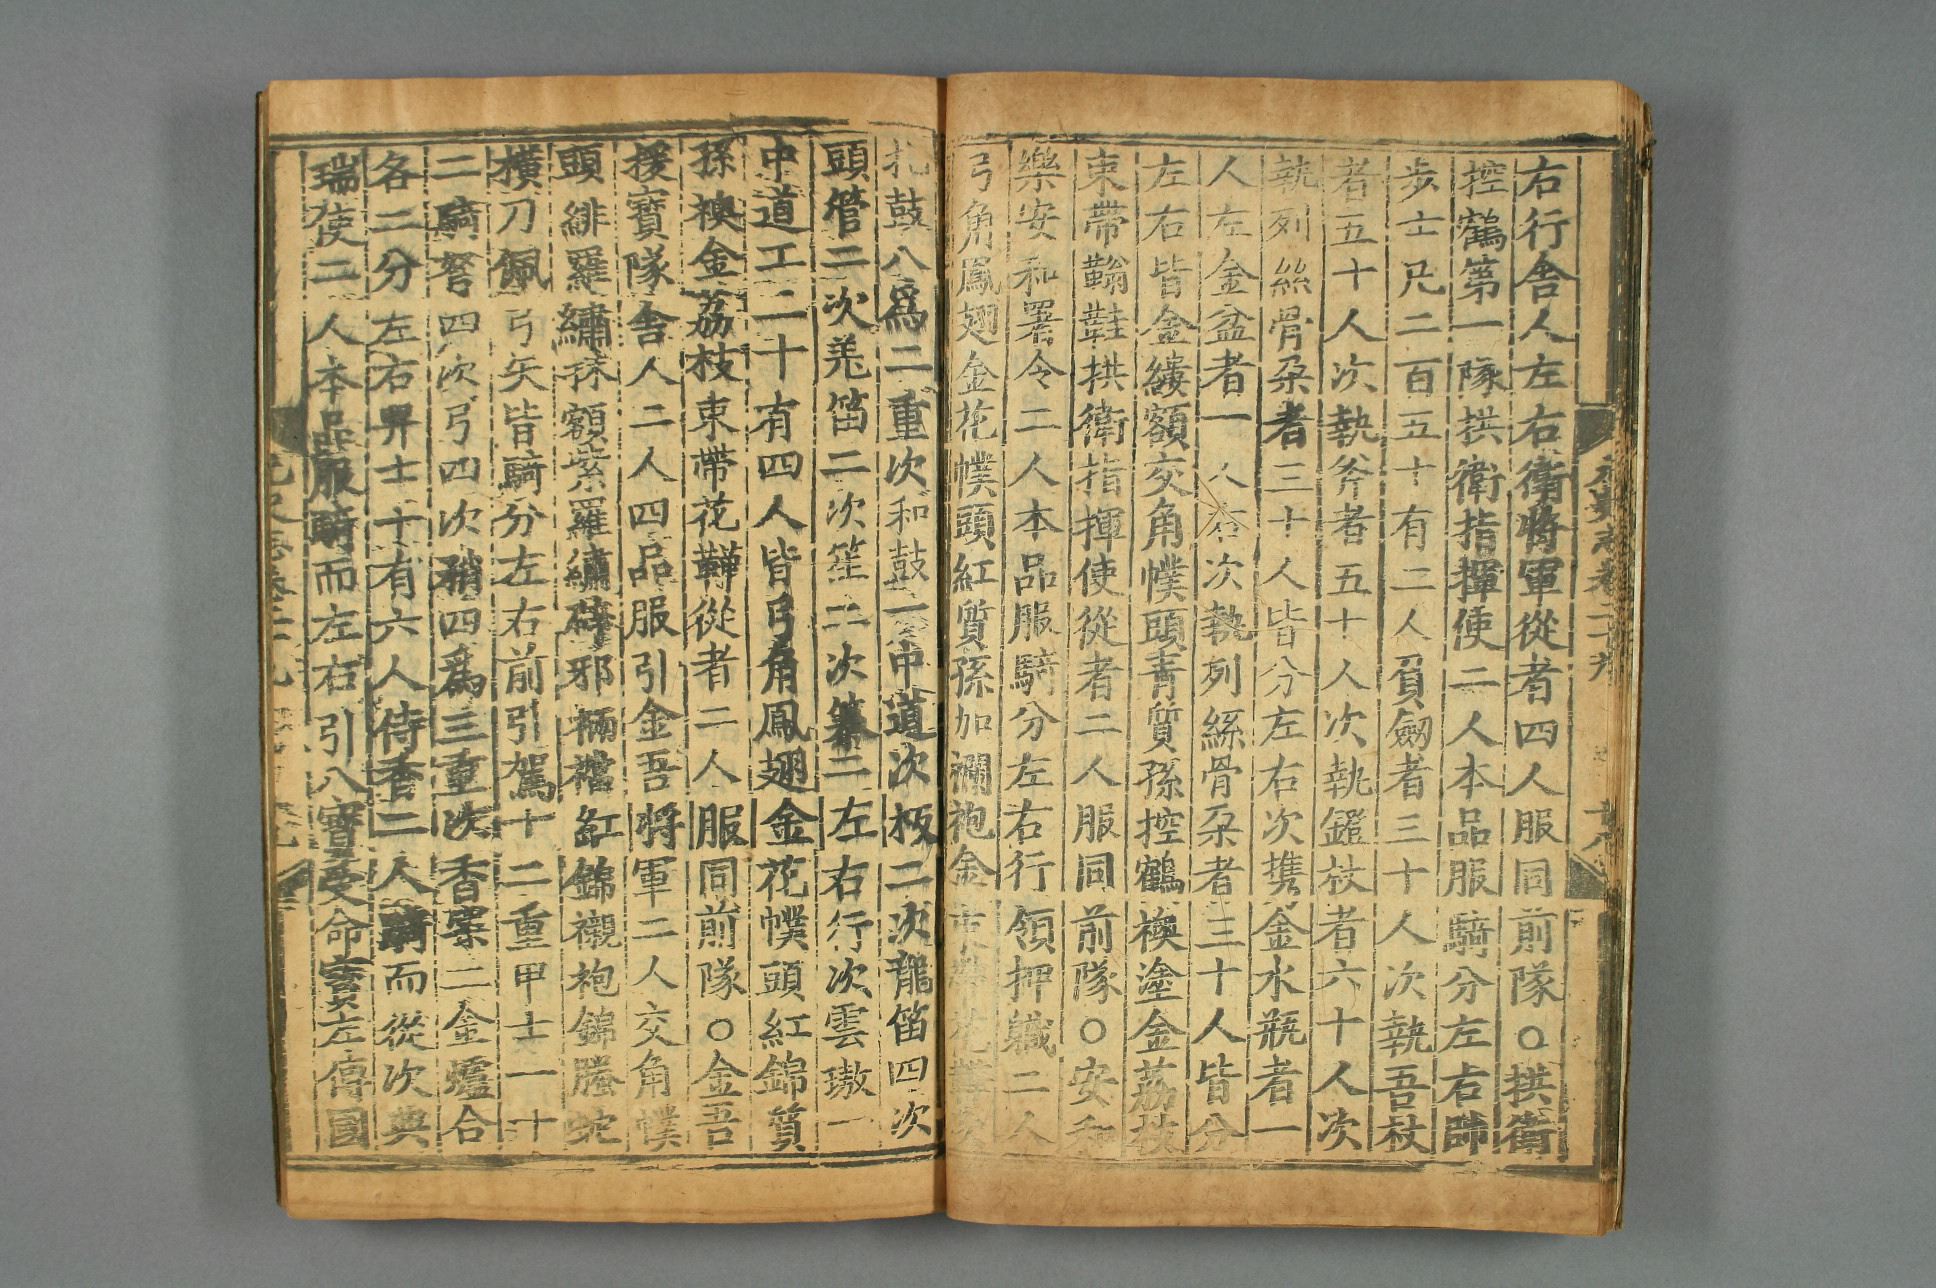 右行舍人左右衛將軍從者四人服同前隊○拱衛
控鶴第一隊拱衛指揮使二人本品服騎分左右帥
步士凡二百五十有二人負劔者三十人次執吾杖
者五十人次執斧者五十人次執鐙杖者六十人次
執列絲骨朶者三十人皆分左右次携金水瓶者一
人左金盆者一人右次執列絲骨朶者三十人皆分
左右皆金縷額交角幞頭青質孫控鶴襖塗金荔枝
束帶鞝鞋拱衛指揮使從者二人服同前隊○安和
樂安和署令二人本品服騎分左右行領押職二人
弓角鳳翅金花幞頭紅質孫加襴袍金束帶花
札鼓八爲二重次和鼓一中道次板二次龍笛四次
頭管二次羗笛二次笙二次䇲二左右行次雲璈一
中道工二十有四人皆弓角鳳翅金花幞頭紅錦質
孫襖金荔枝束帶花鞾從者二人服同前隊○金吾
援寶隊舍人二人四品服引金吾將軍二人交角幞
頭緋羅繡抹額紫羅繡辟邪裲襠紅錦襯袍錦螣蛇
橫刀佩弓矢皆騎分左右前引駕十二重甲士一十
二騎弩四次弓四次矟四爲三重次香案二金爐合
各二分左右舁士十有六人侍香二人騎而從次典
瑞使二人本品服騎而左右引八寶受命寶左傳國